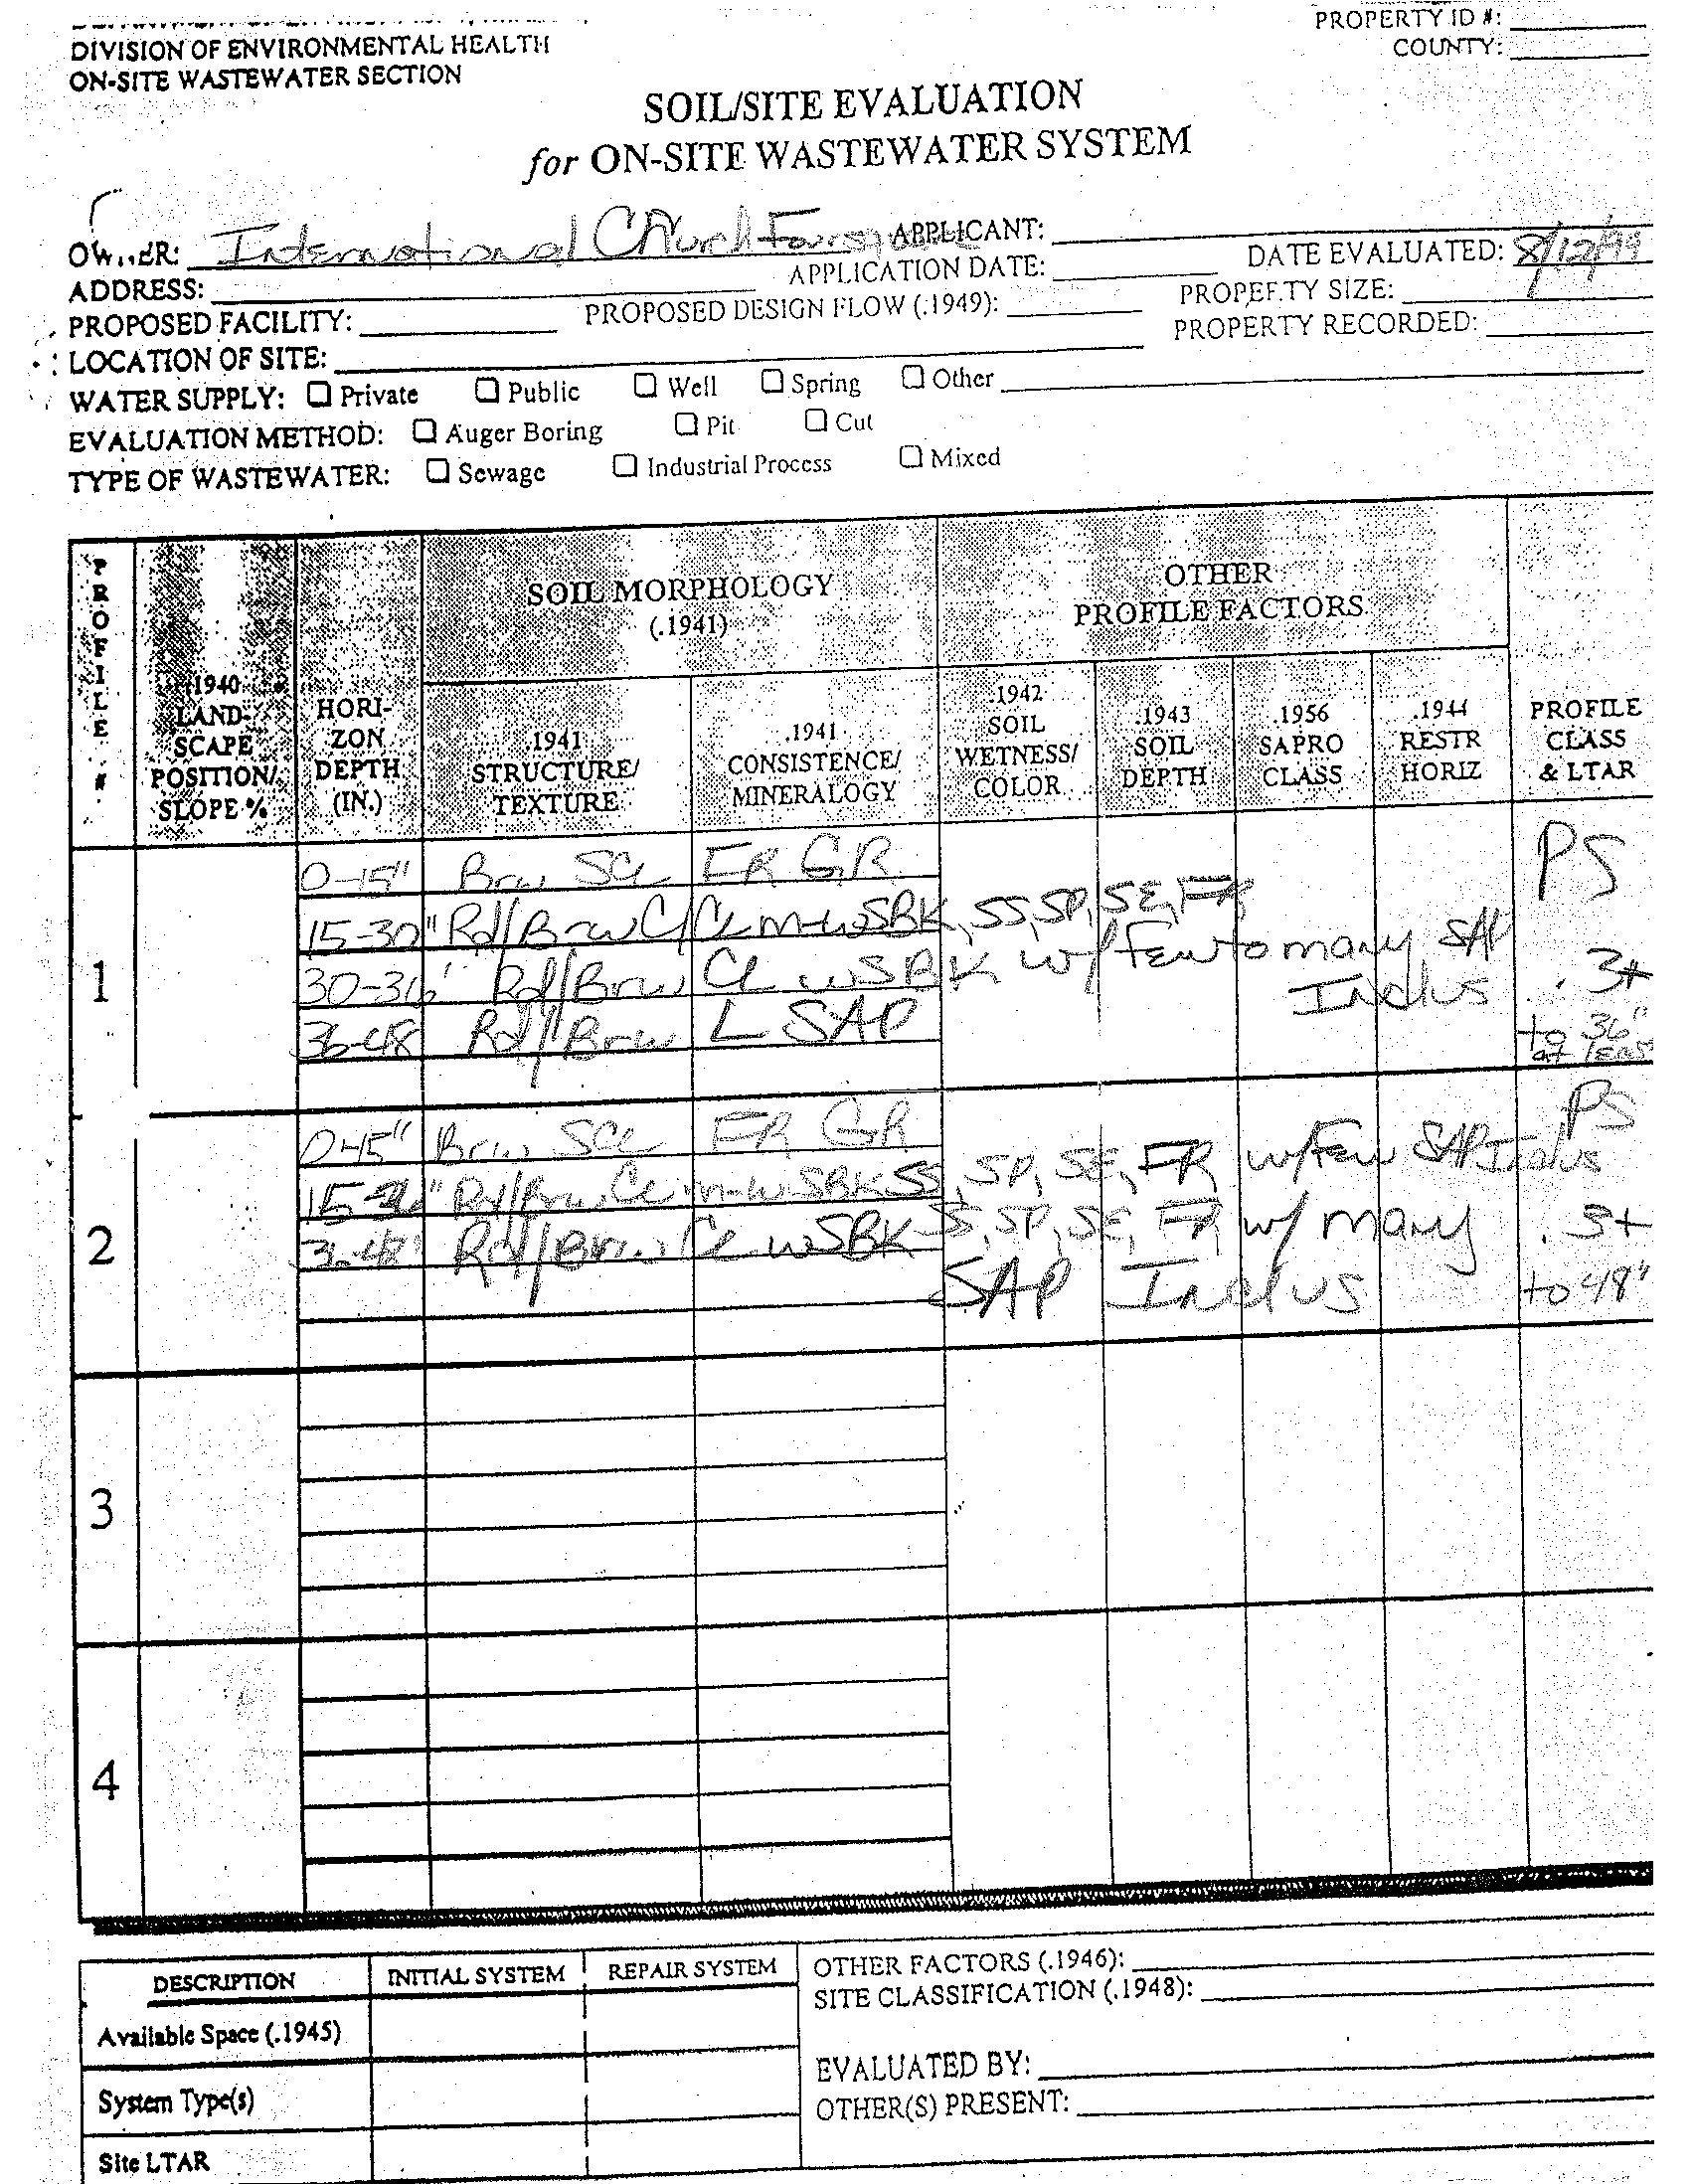 PROPERTY ID #:
DIVISION OF ENVIRONMENTAL HEALTH
COUNTY:
ON-SITE WASTEWATER SECTION
SOIL/SITE EVALUATION
for ON-SITE WASTEWATER SYSTEM
OWNER: International Church Foursquare APPLICANT:
DATE EVALUATED: 8/12/99
ADDRESS: APPLICATION DATE:
PROPERTY SIZE:
PROPOSED FACILITY: PROPOSED DESIGN FLOW (.1949):
PROPERTY RECORDED:
LOCATION OF SITE:
WATER SUPPLY: ☐ Private ☐ Public ☐ Well ☐ Spring ☐ Other
EVALUATION METHOD: ☐ Auger Boring ☐ Pit ☐ Cut
TYPE OF WASTEWATER: ☐ Sewage ☐ Industrial Process ☐ Mixed
PROFILE #
.1940 LANDSCAPE POSITION/ SLOPE %
HORIZON DEPTH (IN.)
SOIL MORPHOLOGY (.1941)
.1941 STRUCTURE/ TEXTURE
.1941 CONSISTENCE/ MINERALOGY
OTHER PROFILE FACTORS
.1942 SOIL WETNESS/ COLOR
.1943 SOIL DEPTH
.1956 SAPRO CLASS
.1944 RESTR HORIZ
PROFILE CLASS & LTAR
1
0-15" Brw SCL FR GR PS
15-30" Rd/Brw C/CL m-wSBK, SS, SP, SE, FR
30-36" Rd/Brw CL wSBK w/ few to many SAP Inclus .3+
36-48 Rd/Brw L SAP to 36" at least
2
0-15" Brw SCL FR GR PS
15-36" Rd/Brw CL m-wSBK SS, SP, SE, FR w/Few SAP Inclus
36-48" Rd/Brw CL wSBK SS, SP, SE, FR w/ many .3+
SAP Inclus to 48"
3
4
DESCRIPTION INITIAL SYSTEM REPAIR SYSTEM
OTHER FACTORS (.1946):
SITE CLASSIFICATION (.1948):
Available Space (.1945)
EVALUATED BY:
System Type(s)
OTHER(S) PRESENT:
Site LTAR